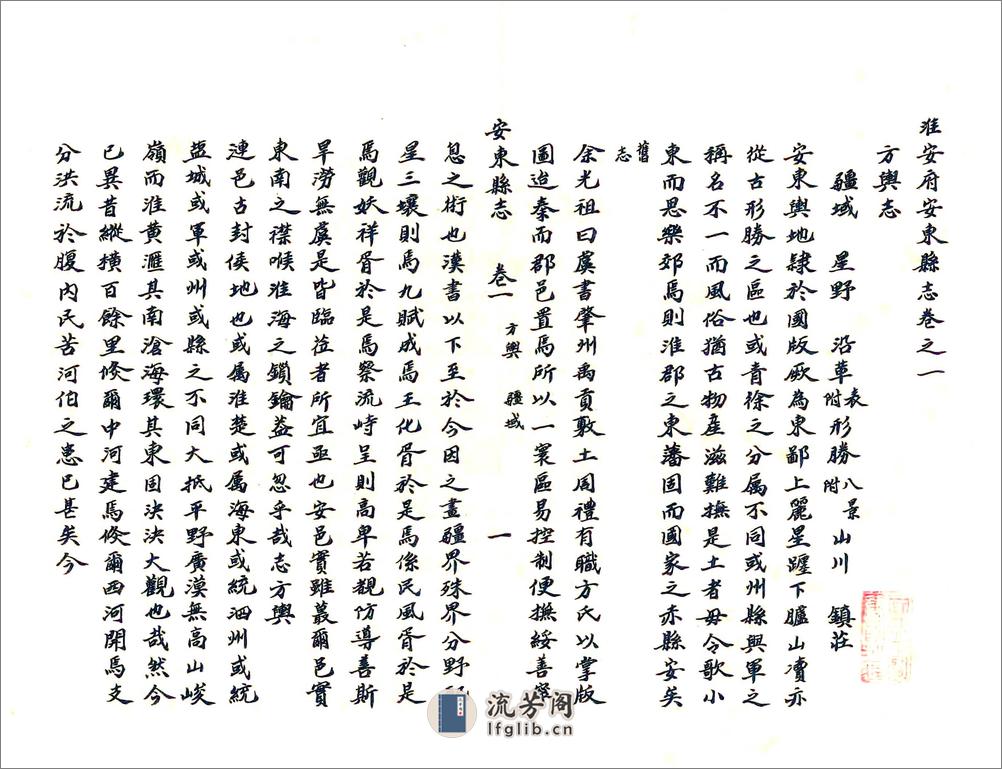 淮安府安東縣志卷之一
方輿志
疆域 星野 沿革表附 形勝八景附 山川 鎮莊
安東輿地隷於國版厥為東鄙上麗星躔下臚山瀆亦
從古形勝之區也或青徐之分属不同或州縣與軍之
稱名不一而風俗猶古物產滋難撫是土者毋令歌小
東而思樂郊焉則淮郡之東藩固而國家之赤縣安矣
舊志
余光祖曰虞書肇州禹貢敷土周禮有職方氏以掌版
圖迨秦而郡邑置焉所以一寰區易控制便撫綏善
安東縣志 卷一 方輿 疆域 一
息之術也漢書以下至於今因之畫疆界殊界分野
星三壤則焉九賦成焉王化胥於是焉係民風胥於是
焉觀妖祥胥於是焉察流峙呈則高卑若覩仿導善斯
旱澇無虞是皆臨蒞者所宜亟也安邑實雖蕞爾邑實
東南之襟喉淮海之鎖鑰葢可忽乎哉志方輿
連邑古封侯地也或属淮楚或属海東或統泗州或統
盐城或軍或州或縣之不同大抵平野廣漠無高山峻
嶺而淮黄滙其南滄海環其東固泱泱大觀也哉然今
已異昔縱横百餘里倐爾中河建焉倐爾西河開焉支
分洪流於腹内民苦河伯之患已甚矣今
流芳阁
lfglib.cn